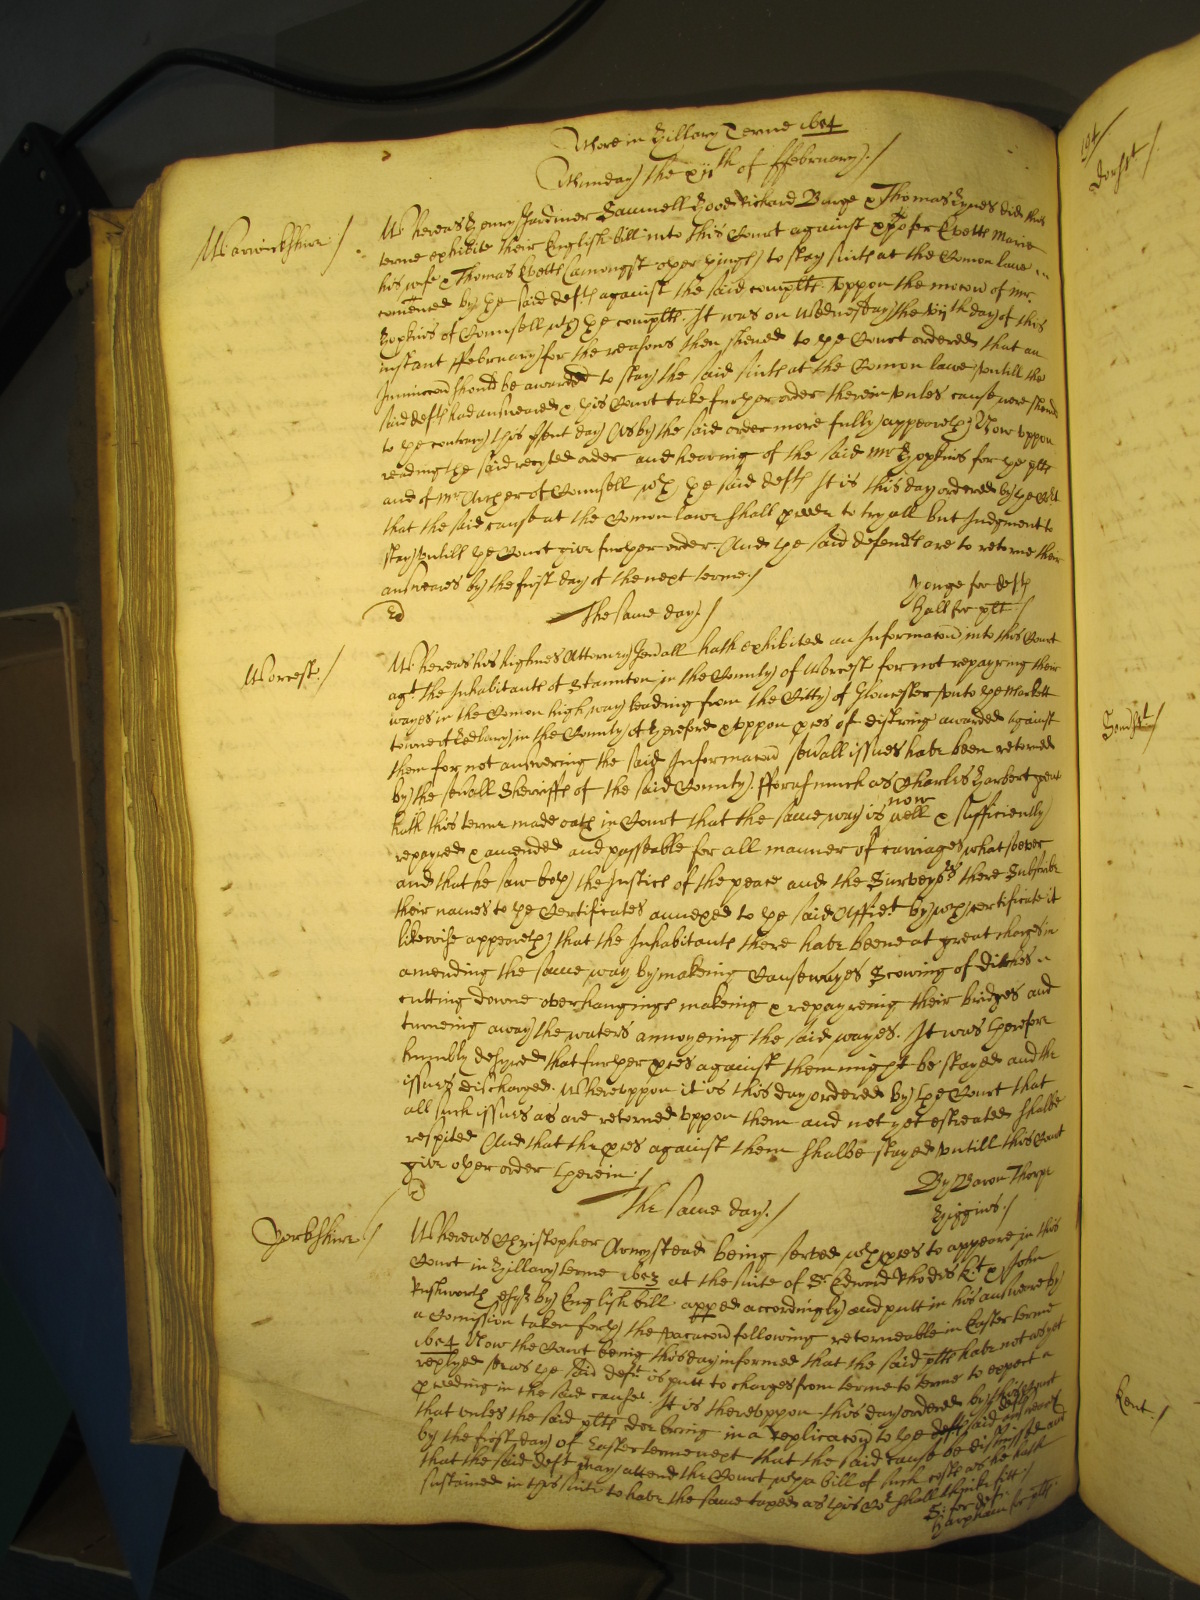 More in Hillary Terme 1654
Munday the xijth of ffebruary /
Warwickshire /
Whereas Henry Jardiner Samuell Hood Richard Barge & Thomas Hynes did this
terme exhibite their English bill into this Court against xpofer Evetts Marie
his wife & Thomas Evetts (amongst other things) to stay suite at the Comon lawe
comenced by the said defts against the said complts. Uppon the mocon of Mr.
Hopkins of Counsell wth the complts. It was on Wednesday the vijth day of this
instant ffebruary for the reasons then shewed to the Court ordered that an
Iniuncon should be awarded to stay the said suite at the Comon lawe untill the
said defts had answeared & this Court take further order therein unles cause were shewed
to the contrary this psent day As by the said order more fully appeareth Now uppon
reading the said recyted order and hearing of the said Mr Hopkins for the plts
and of Mr Archer of Counsell wth the said defts It is this day ordered by the Cort
that the said cause at the Comon lawe shall pceede to tryall but Judgment to
stay Untill the Court give further order And the said defendts are to retorne their
answeares by the first day of the next terme /
Yonge for defts
Hall for plts /
Ed
The same day /
Worcest. /
Whereas his highnes Attorney Genall hath exhibited an Informacon into this Court
agt. the Inhabitants of Staunton in the County of Worcest for not repayring their
wayes in the Comon high way leading from the Citty of Gloucester unto the Markett
towne of Ledbury in the County of Hereford & Uppon pces of distring awarded against
them for not answering the said Informacon sevall issues have been retorned
by the sevall Sherriffs of the said County. fforasmuch as Charles Harbert gent
hath this terme made oath in Court that the same way is now well & sufficiently
repayred & amended and passeable for all manner of carriages whatsoever
and that he saw both the Justice of the peace and the Surveyors there Subscribe
their names to the Certificates annexed to the said Affidt. by wch certificate it
likewise appeareth that the Inhabitants there have beene at great charges in
amending the same way by makeing Causewayes Scowring of ditches
cutting downe overhangings makeing & repayreing their bridges and
turneing away the waters annoyeing the said wayes. It was therefore
humbly desyred that further pces against them might be stayed and the
issues discharged. Whereuppon it is this day ordered by the Court that
all such issues as are retorned uppon them and not yet estreated shalbe
respited And that the pces against them shalbe stayed untill this Court
give other order therein /
By Baron Thorpe
Higgins /
The same day /
Yorkshire /
Whereas Christopher Armystead being served wth pces to appeare in this
Court in Hillary terme 1653 at the suite of Sr Edward Rhodes Kt. & John
Rushworth esqr by English bill apped accordingly and putt in his answere by
a Comission taken forth the vacacon following retorneable in Easter terme
1654 Now the Court being this day informed that the said plts have not as yet
replyed soe as the said deft is putt to charges from terme to terme to expect a
pceeding in the said cause. It is thereuppon this day ordered by this Court
that unles the said plts doe bring in a Replicacon to the defts said answeare
by the first day of Easter terme next that the said cause be dismissed and
that the said deft may attend the Court wth a bill of such costs as he hath
sustained in this suite to have the same taxed as this Cort shall thinke fitt /
S: for deft
Harpham for plts
191
Dorset /
Somst /
Kent. /